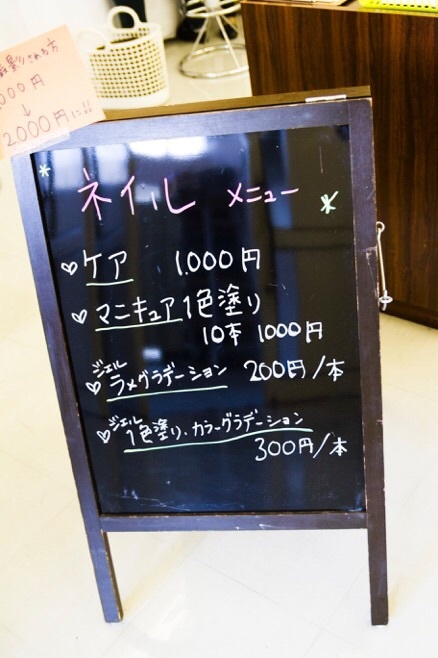 影される方
000円
↓
2,000円に!!
ネイル メニュー
♡ケア 1.000円
♡マニキュア1色塗り
10本 1000円
ジェル
♡ラメグラデーション 200円/本
ジェル
♡1色塗り、カラーグラデーション
300円/本